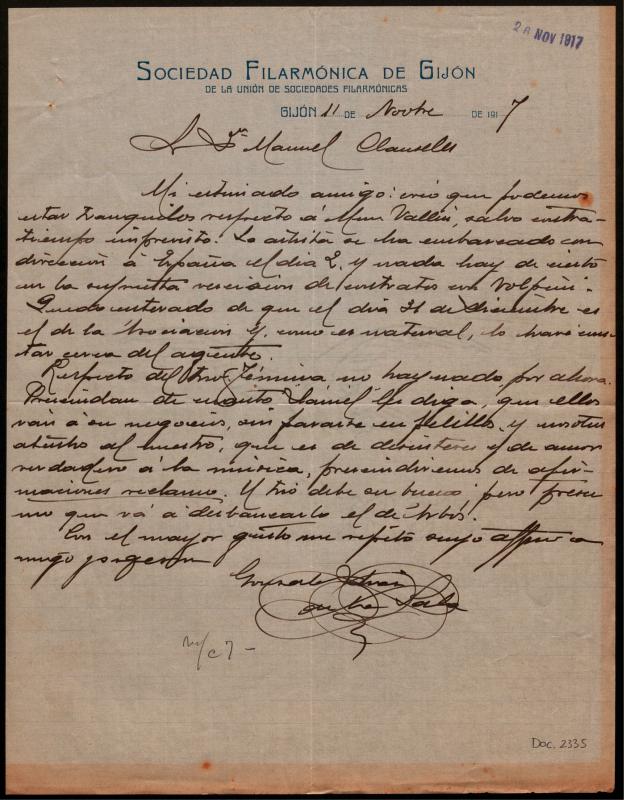 28 NOV 1917
SOCIEDAD FILARMÓNICA DE GIJÓN
DE LA UNIÓN DE SOCIEDADES FILARMÓNICAS
GIJÓN 11 DE Novbre DE 1917
Manuel Clausells
Mi estimado amigo: creo que podemos
estar tranquilos respecto á Mme Vallin, salvo contra-
tiempo imprevisto. La artista se ha embarcado con
dirección á España el día 2, y nada hay de cierto
en la supuesta rescisión de contratos con Volpini.
Quedo enterado de que el día 31 de diciembre es
el de la Asociación y, como es natural, lo haré cons-
tar cerca del agente.
Respecto del Trio no hay nada por ahora.
Prescindan de cuanto Daniel le diga, que ellos
ván á su negocio, sin pararse en pelillos, y nosotros
atentos al nuestro, que es de desinterés y de amor
verdadero á la música, prescindiremos de afir-
maciones reclamo. El trío debe ser bueno; pero presu
mo que vá á desbancarlo el de Arbós.
Con el mayor gusto me repito suyo affmo a
migo
Gonzalo
de la Sala
c 7 -
Doc. 2335